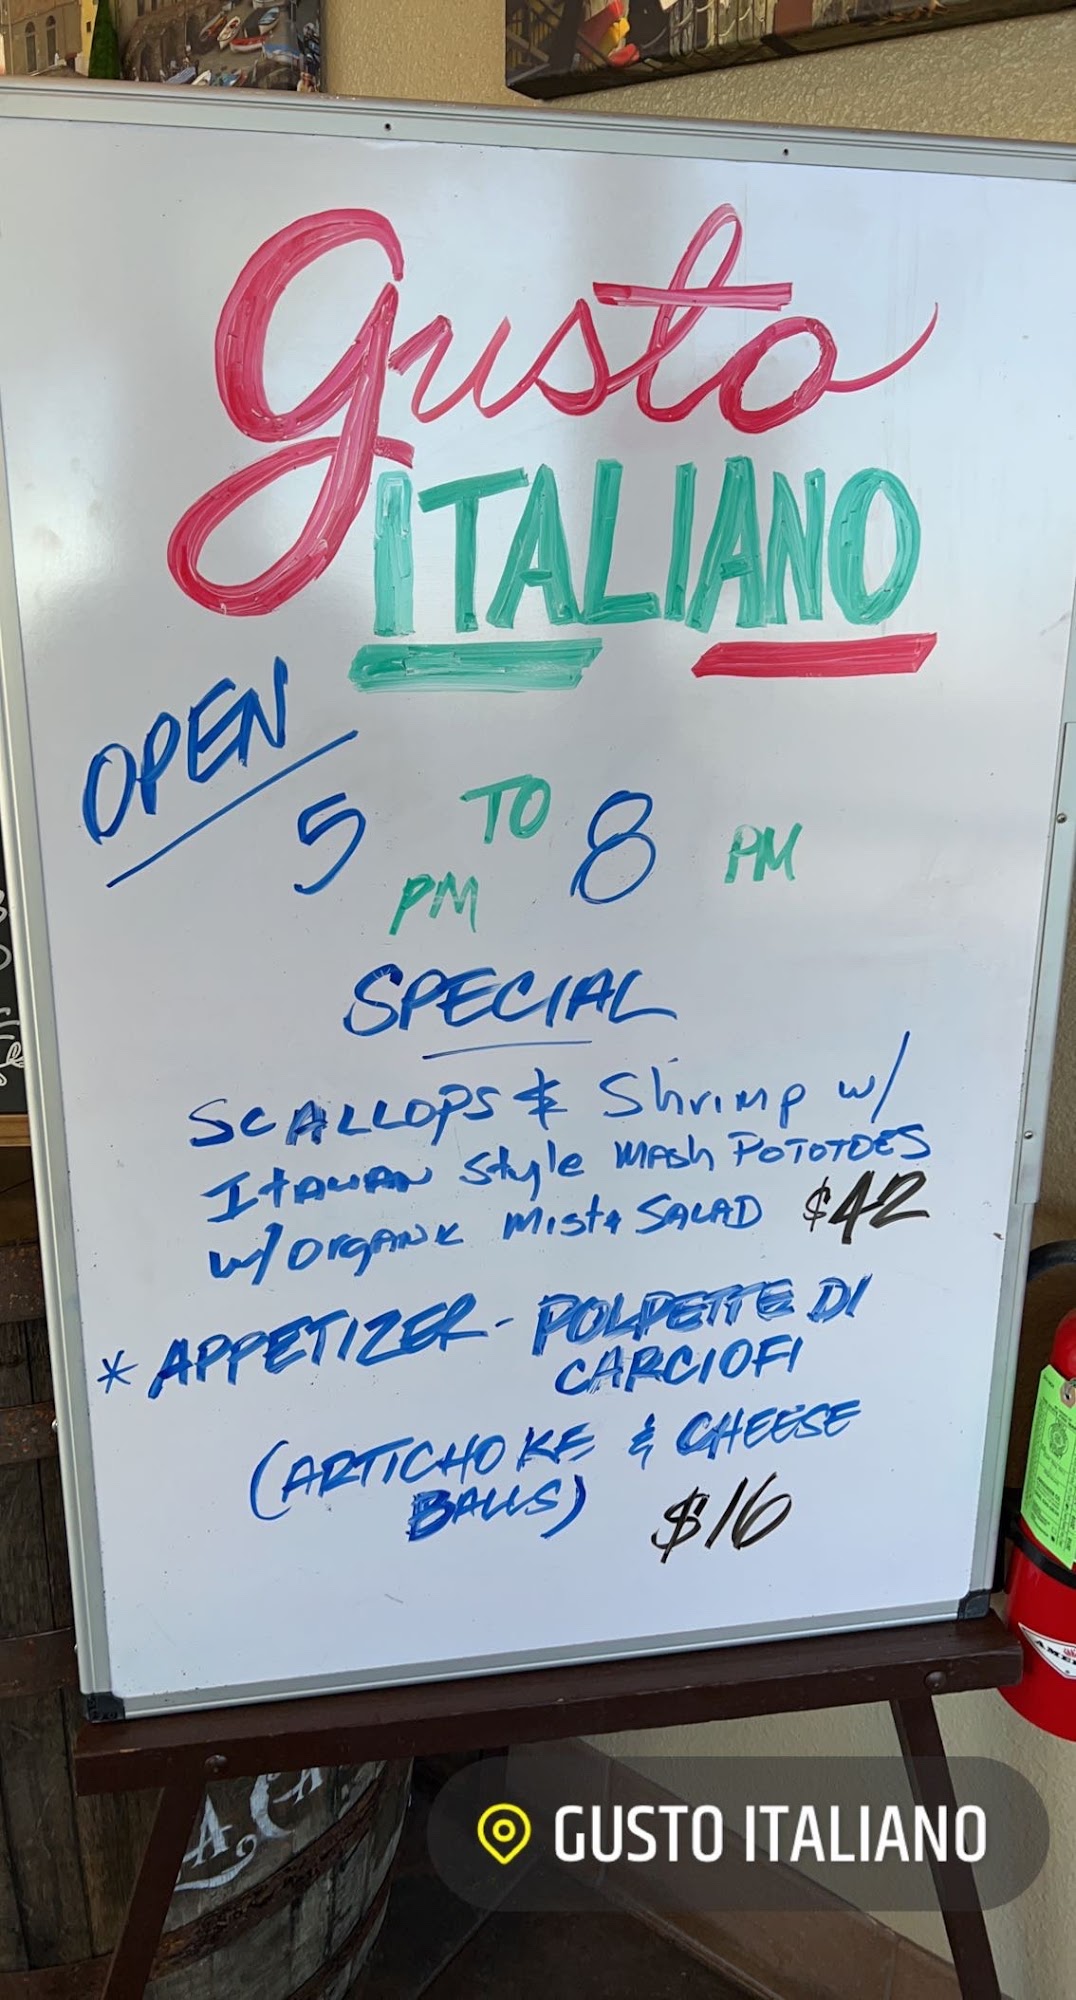 Gusto
ITALIANO
OPEN
5 PM TO 8 PM
SPECIAL
SCALLOPS & Shrimp w/
ITALIAN Style MASh POTOTOES
w/ORGANIC MISTA SALAD $42
* APPETIZER - POLPETTE DI
CARCIOFI
(ARTICHOKE & CHEESE
BALLS) $16
GUSTO ITALIANO